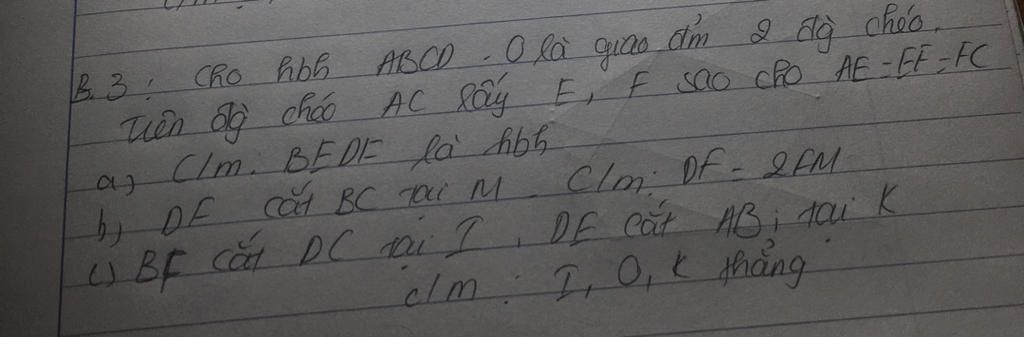 B.3: Cho hbh ABCD. O là giao đm 2 đg chéo.
Trên đg chéo AC lấy E, F sao cho AE = EF = FC
a, C/m: BEDF là hbh
b, DF cắt BC tại M. C/m: DF = 2FM
c) BF cắt DC tại I, DE cắt AB, tại K
c/m: I, O, K thẳng